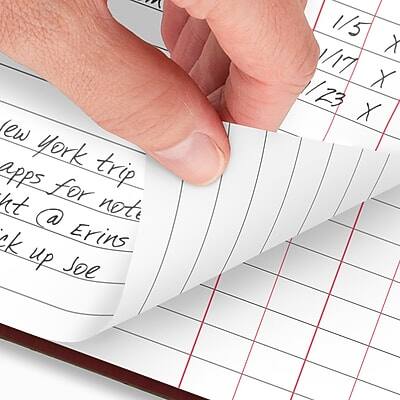 1/5 X
1/17 X
1/23 X
New York trip
apps for note
ht @ Erins
ick up Joe